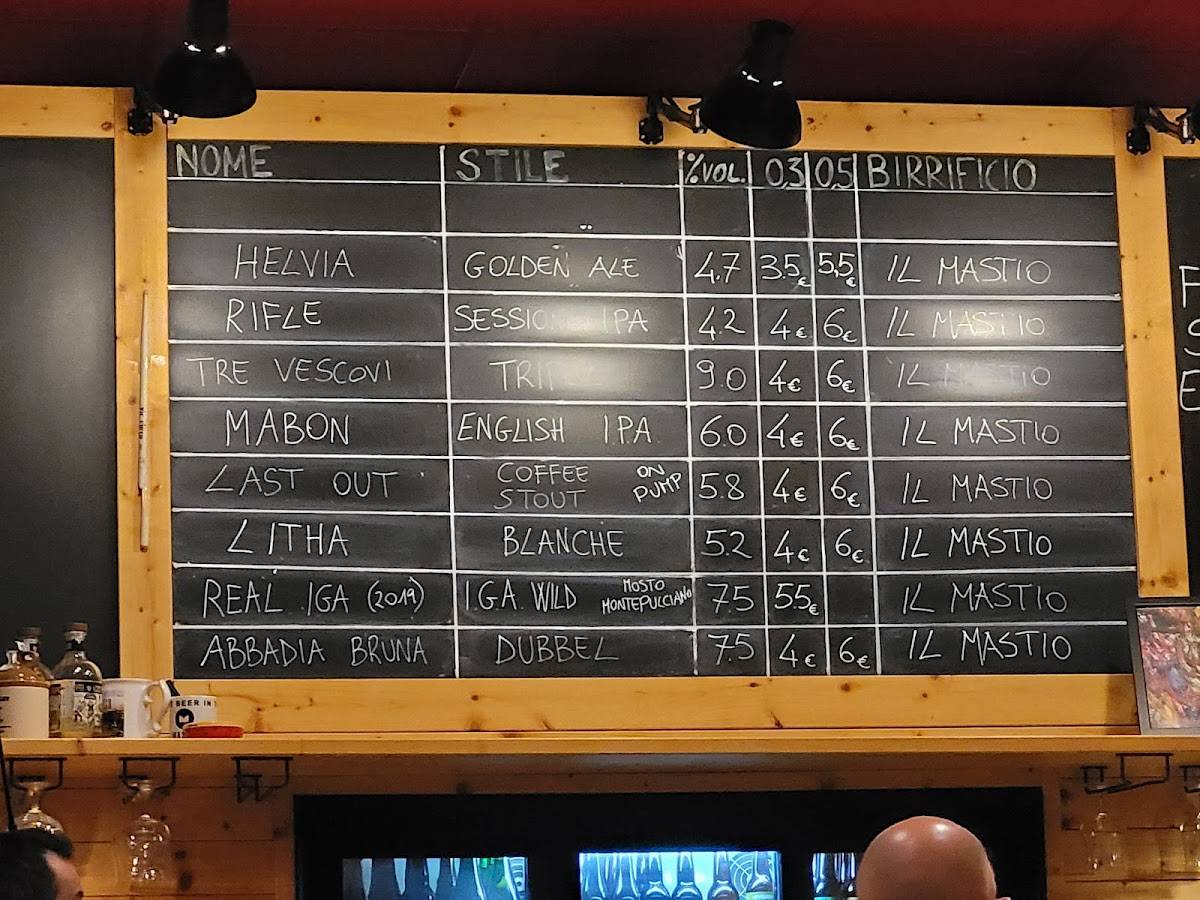 NOME STILE %VOL. 0,3 0,5 BIRRIFICIO
HELVIA GOLDEN ALE 4.7 3.5€ 5,5€ IL MASTIO
RIFLE SESSION IPA 4.2 4€ 6€ IL MASTIO
TRE VESCOVI 9.0 4€ 6€ IL MASTIO
MABON ENGLISH IPA 6.0 4€ 6€ IL MASTIO
LAST OUT COFFEE STOUT ON PUMP 5.8 4€ 6€ IL MASTIO
LITHA BLANCHE 5.2 4€ 6€ IL MASTIO
REAL IGA (2019) IGA WILD MOSTO MONTEPULCIANO 7.5 5.5€ IL MASTIO
ABBADIA BRUNA DUBBEL 7.5 4€ 6€ IL MASTIO
BEER IN